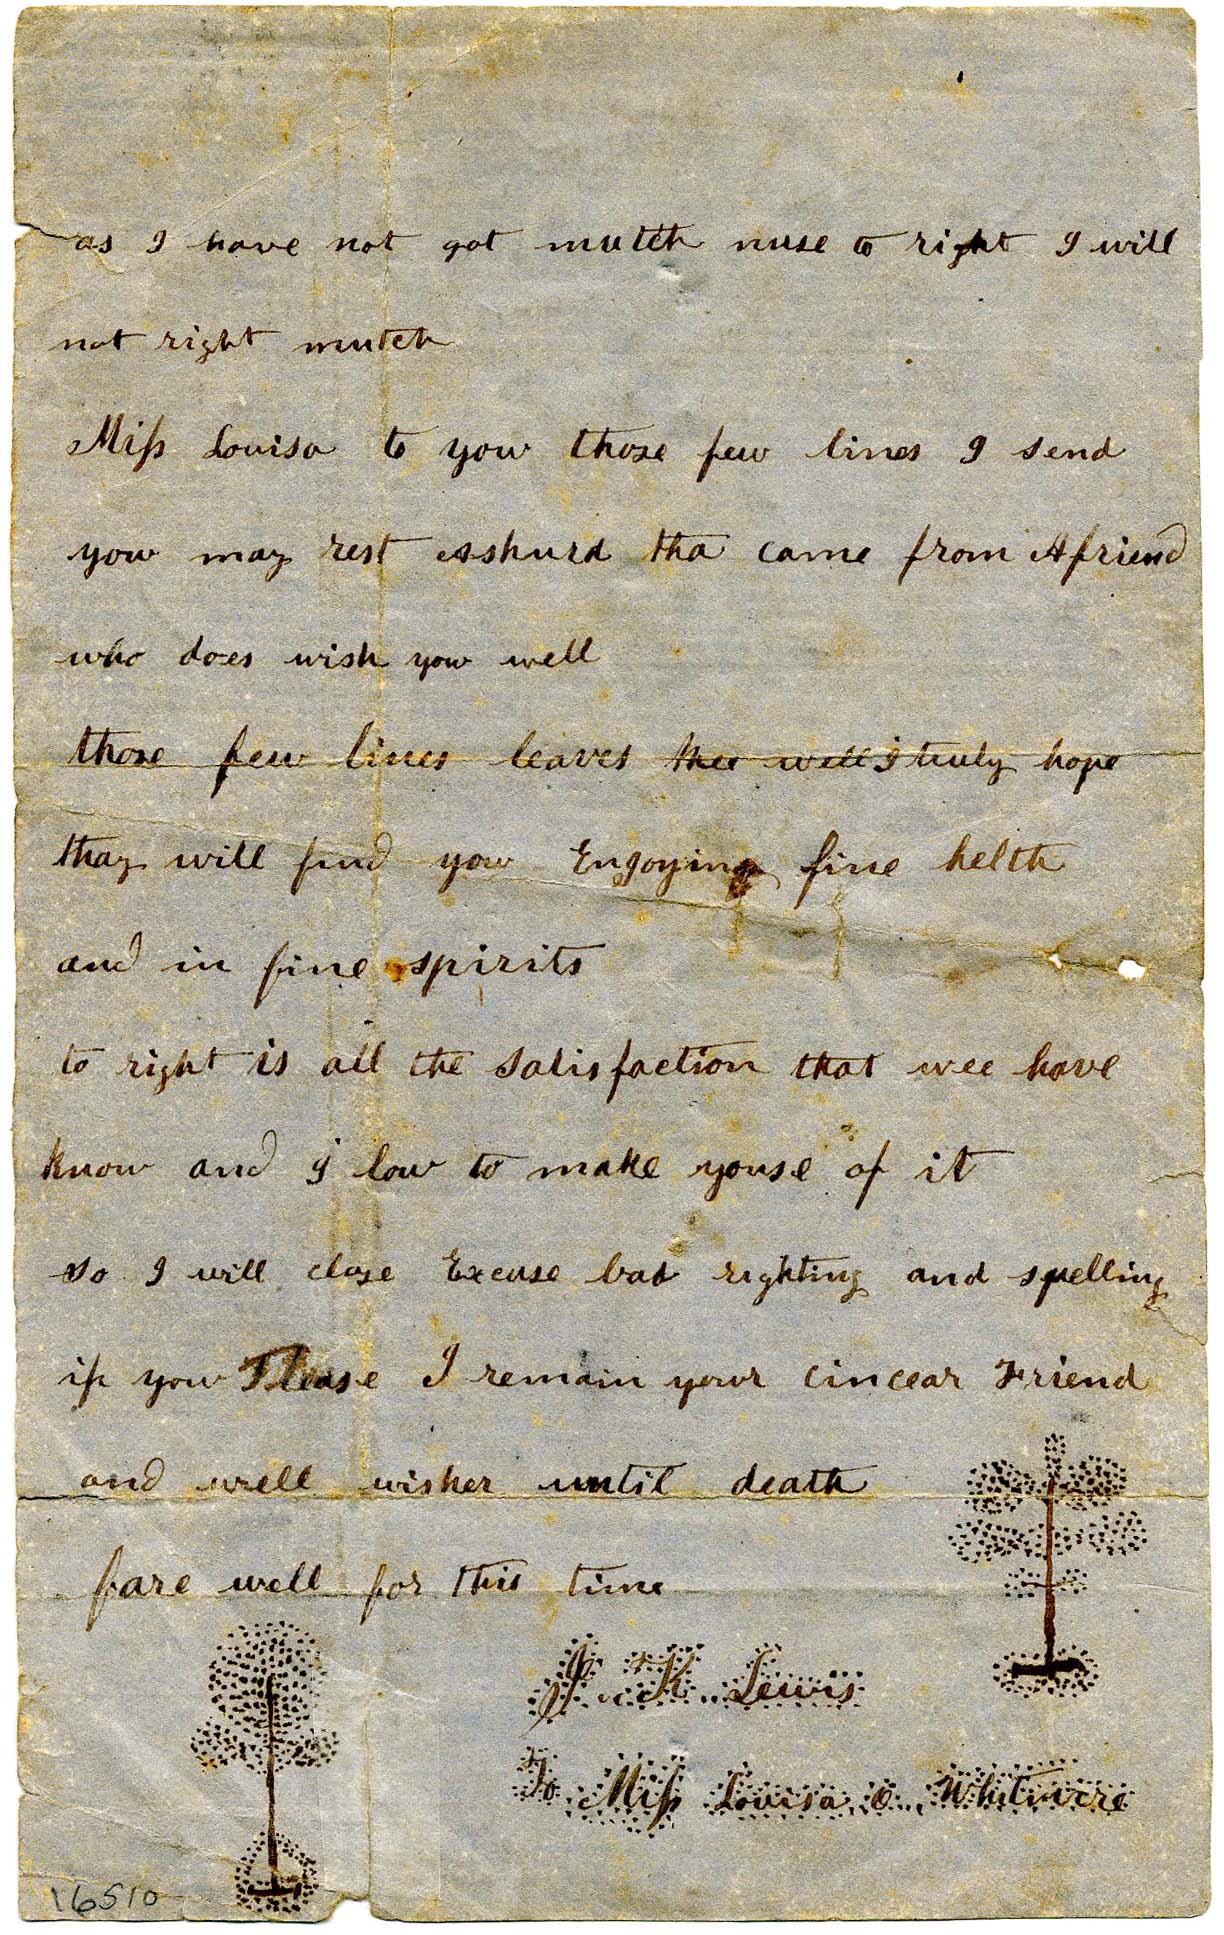 as I have not got mutch nuse to right I will
not right mutch
Miss Louisa to yow those few lines I send
yow may rest Ashurd tha came from A friend
who does wish yow well
those few lines leaves thee well I truly hope
thay will find yow Engoying fine helth
and in fine spirits
to right is all the satisfaction that wee have
know and I low to make youse of it
so I will close Excuse bad righting and spelling
if yow Please I remain your cincear Friend
and well wisher until death
fare well for this time
J. K. Lewis
To Miss Louisa O. Whitmire
16510